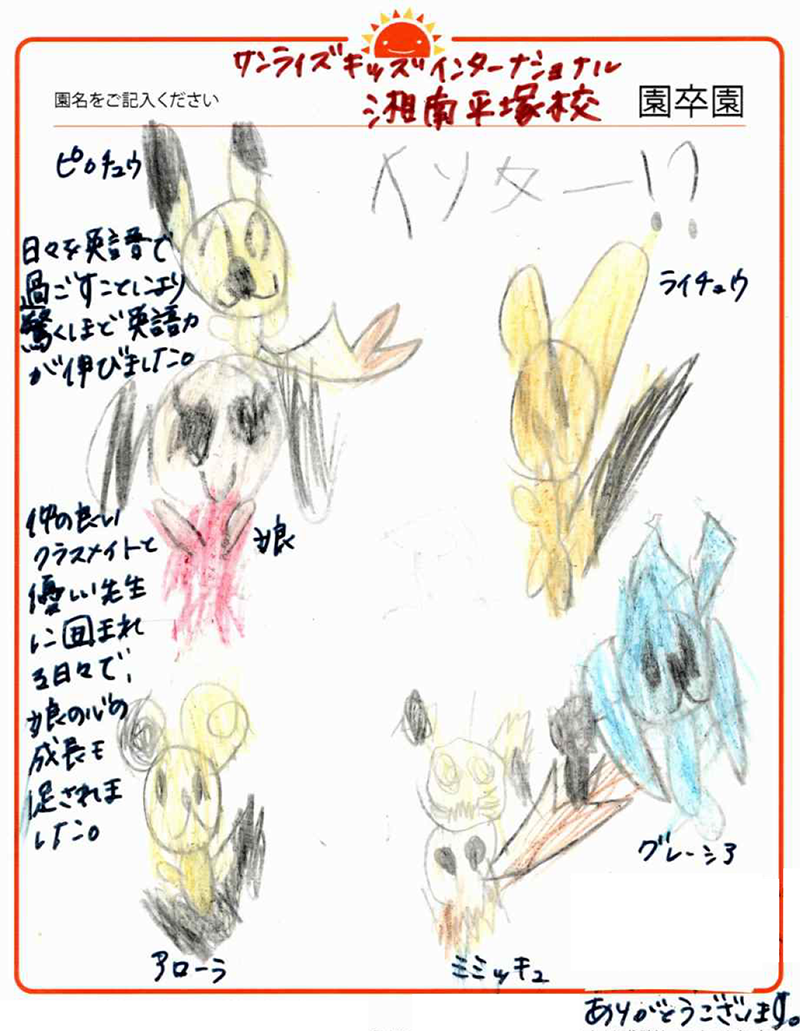 サンライズキッズインターナショナル
園名をご記入ください
湘南平塚校
園卒園
ピカチュウ
インター!?
日々を英語で
過ごすことにより
驚くほど英語力
が伸びました。
ライチュウ
仲の良い
クラスメイトと
優しい先生
に囲まれ
る日々で、
娘の心の
成長も
促されま
した。
娘
グレーシア
アローラ
ミミッキュ
ありがとうございます。